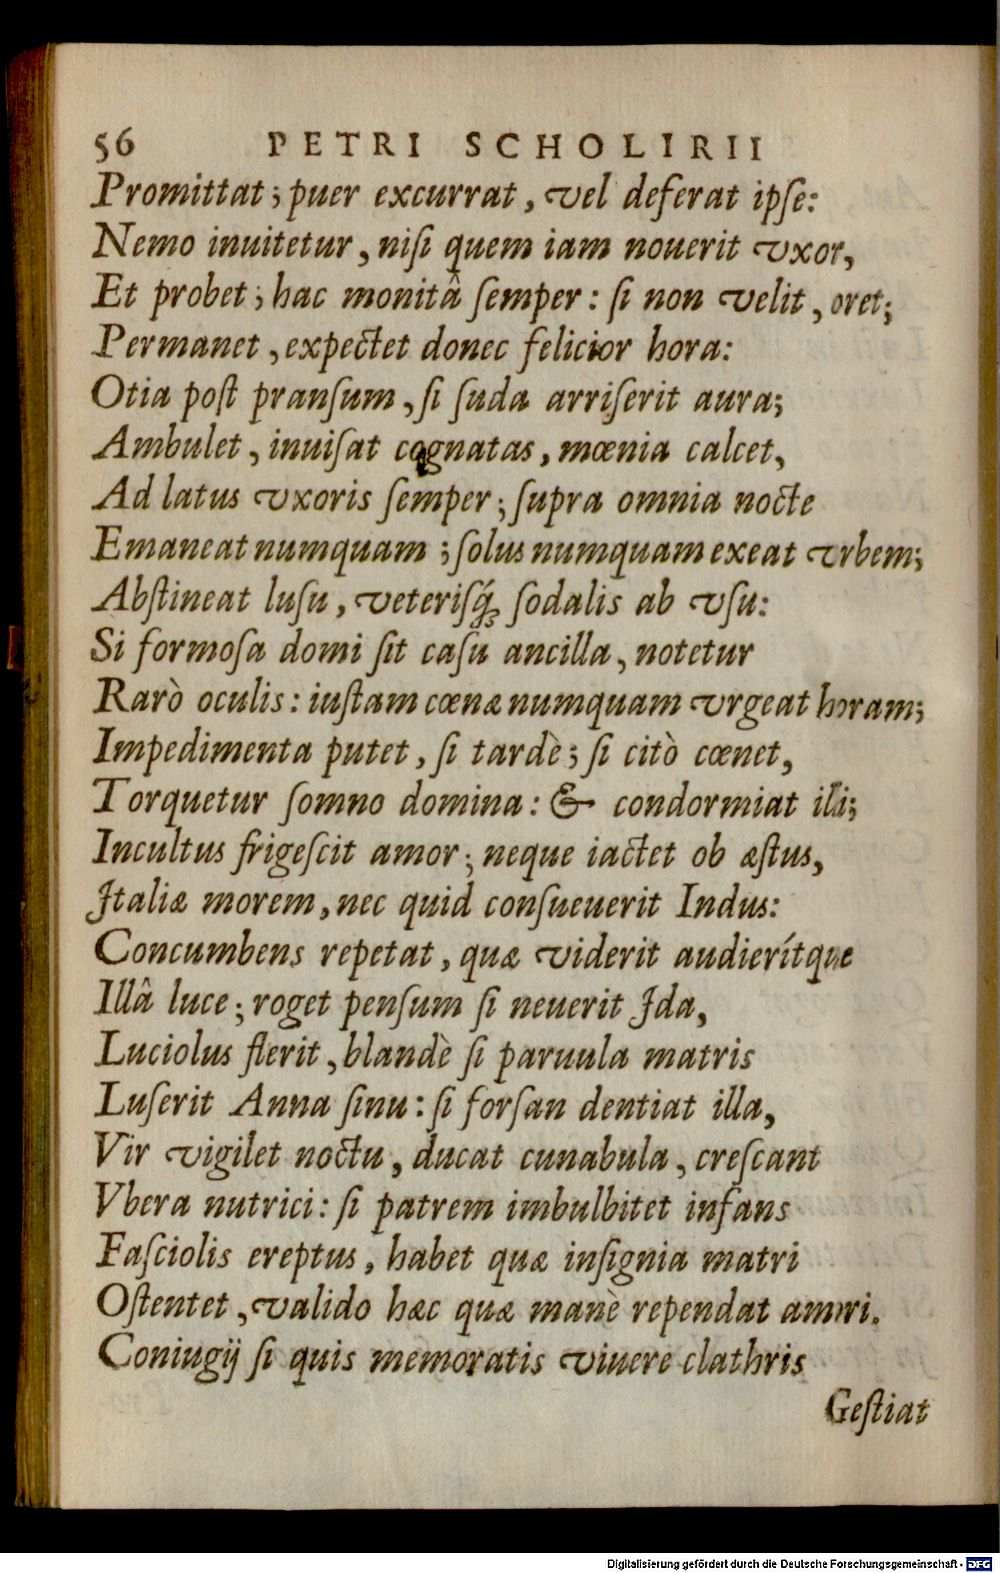 56 PETRI SCHOLIRII
Promittat; puer excurrat, vel deferat ipſe:
Nemo inuitetur, niſi quem iam nouerit vxor,
Et probet; hac monitâ ſemper: ſi non velit, oret;
Permanet, expectet donec felicior hora:
Otia poſt pranſum, ſi ſuda arriſerit aura;
Ambulet, inuiſat cognatas, mœnia calcet,
Ad latus vxoris ſemper; ſupra omnia nocte
Emaneat numquam; ſolus numquam exeat vrbem;
Abſtineat luſu, veteriſq́ ſodalis ab vſu:
Si formoſa domi ſit caſu ancilla, notetur
Rarò oculis: iuſtam cœnæ numquam vrgeat horam;
Impedimenta putet, ſi tardè; ſi citò cœnet,
Torquetur ſomno domina: & condormiat illi;
Incultus frigeſcit amor; neque iactet ob æſtus,
Italiæ morem, nec quid conſueuerit Indus:
Concumbens repetat, quæ viderit audierítque
Illâ luce; roget penſum ſi neuerit Ida,
Luciolus flerit, blandè ſi paruula matris
Luſerit Anna ſinu: ſi forſan dentiat illa,
Vir vigilet noctu, ducat cunabula, creſcant
Vbera nutrici: ſi patrem imbulbitet infans
Faſciolis ereptus, habet quæ inſignia matri
Oſtentet, valido hæc quæ manè rependat amori.
Coniugij ſi quis memoratis viuere clathris
Geſtiat
Digitalisierung gefördert durch die Deutsche Forschungsgemeinschaft - DFG